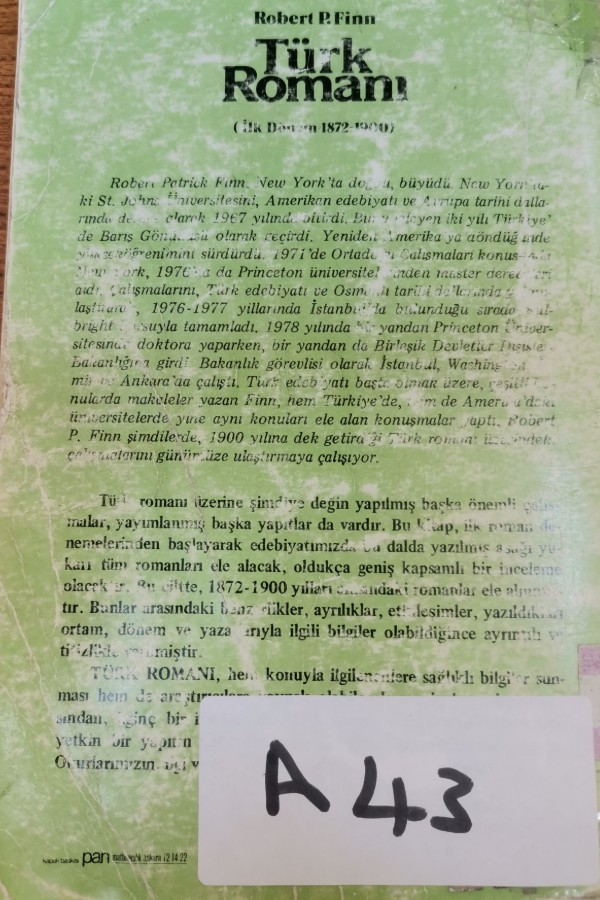 Robert P. Finn
Türk
Romanı
(İlk Dönem 1872-1900)
Robert Patrick Finn, New York'ta doğdu, büyüdü. New York'ta-
ki St. Johns Üniversitesini, Amerikan edebiyatı ve Avrupa tarihi dalla-
rında olarak 1967 yılında bitirdi. Bunu izleyen iki yılı Türkiye'
de Barış Gönüllüsü olarak geçirdi. Yeniden Amerika'ya döndüğünde
yükseköğrenimini sürdürdü. 1971'de Ortadoğu Çalışmaları konusunda
New York, 1976'da da Princeton üniversitelerinden master dereceleri
aldı. Çalışmalarını, Türk edebiyatı ve Osmanlı tarihi dallarında
1976-1977 yıllarında İstanbul'da bulunduğu sırada Ful-
bright bursuyla tamamladı. 1978 yılında bir yandan Princeton Üniver-
sitesinde doktora yaparken, bir yandan da Birleşik Devletler Dışişleri
Bakanlığına girdi. Bakanlık görevlisi olarak İstanbul, Washington
ve Ankara'da çalıştı. Türk edebiyatı başta olmak üzere, çeşitli ko-
nularda makaleler yazan Finn, hem Türkiye'de, hem de Amerika'daki
üniversitelerde yine aynı konuları ele alan konuşmalar yaptı. Robert
P. Finn şimdilerde, 1900 yılına dek getirdiği Türk romanı üzerindeki
çalışmalarını günümüze ulaştırmaya çalışıyor.
Türk romanı üzerine şimdiye değin yapılmış başka önemli çalış-
malar, yayımlanmış başka yapıtlar da vardır. Bu kitap, ilk roman de-
nemelerinden başlayarak edebiyatımızda bu dalda yazılmış aşağı yu-
karı tüm romanları ele alacak, oldukça geniş kapsamlı bir inceleme
olacaktır. Bu ciltte, 1872-1900 yılları arasındaki romanlar ele alınmış-
tır. Bunlar arasındaki benzerlikler, ayrılıklar, etkileşimler, yazıldıkları
ortam, dönem ve yazarlarıyla ilgili bilgiler olabildiğince ayrıntılı ve
titizlikle verilmiştir.
TÜRK ROMANI, hem konuyla ilgilenenlere sağlıklı bilgiler sun-
ması hem de araştırmacılara kaynak
sından, ilginç bir
yetkin bir yapıtın
Okurlarımızın ilgi
A 43
kapak baskısı pan matbaacılık ankara 12 14 22